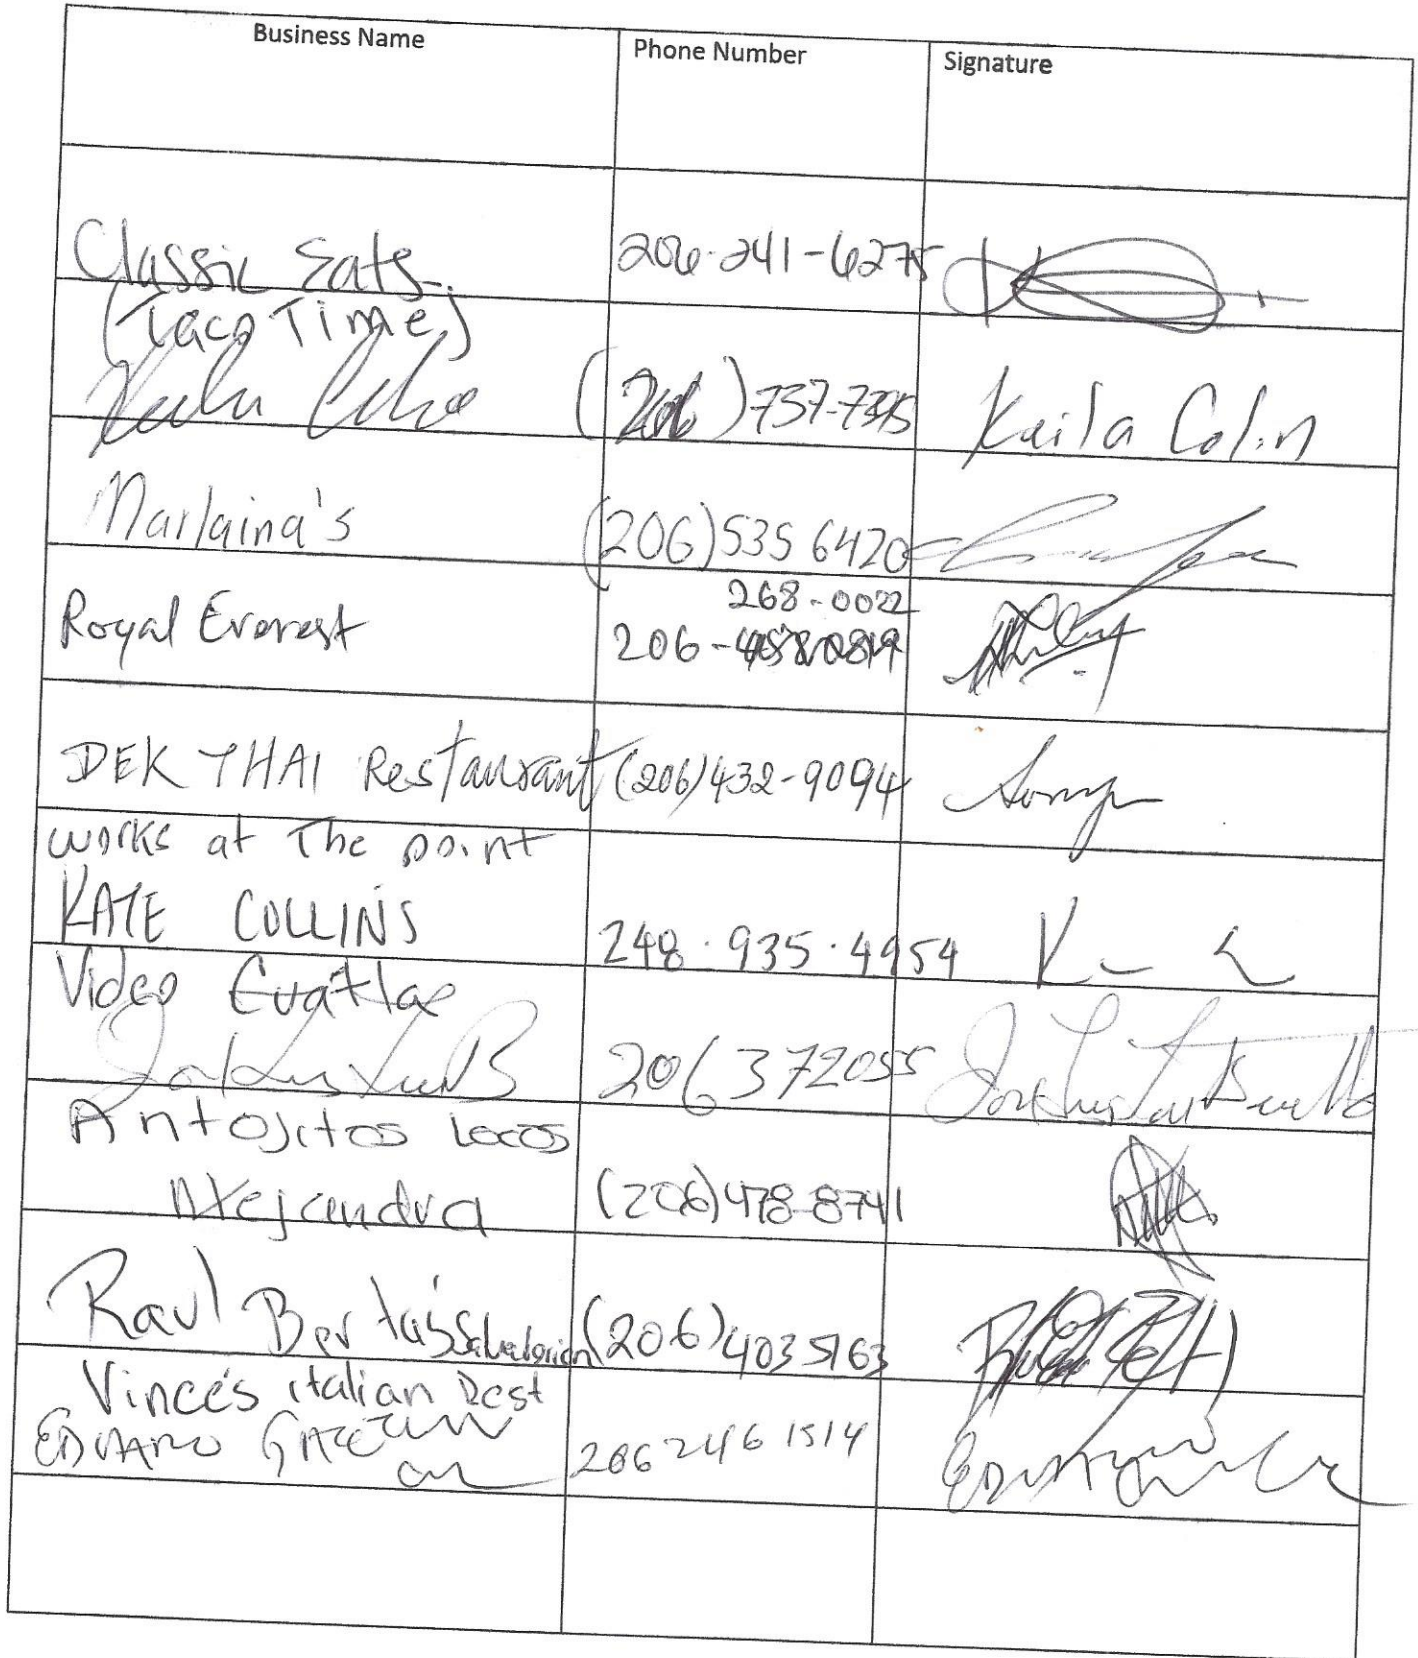 Business Name Phone Number Signature
Classic Eats. 206-241-6275
(Taco Time)
737-7395 Kaila Colin
Marlaina's (206)535 6420
268-0022
Royal Everest 206-
DEK THAI Restaurant (206)432-9094
works at The point
KATE COLLINS 248.935.4954
Video
206 372055
Antojitos Locos
Alejandra (206)478-8741
Raul Berta's Salvadorian (206)4035163
Vince's italian Rest
206 246 1514